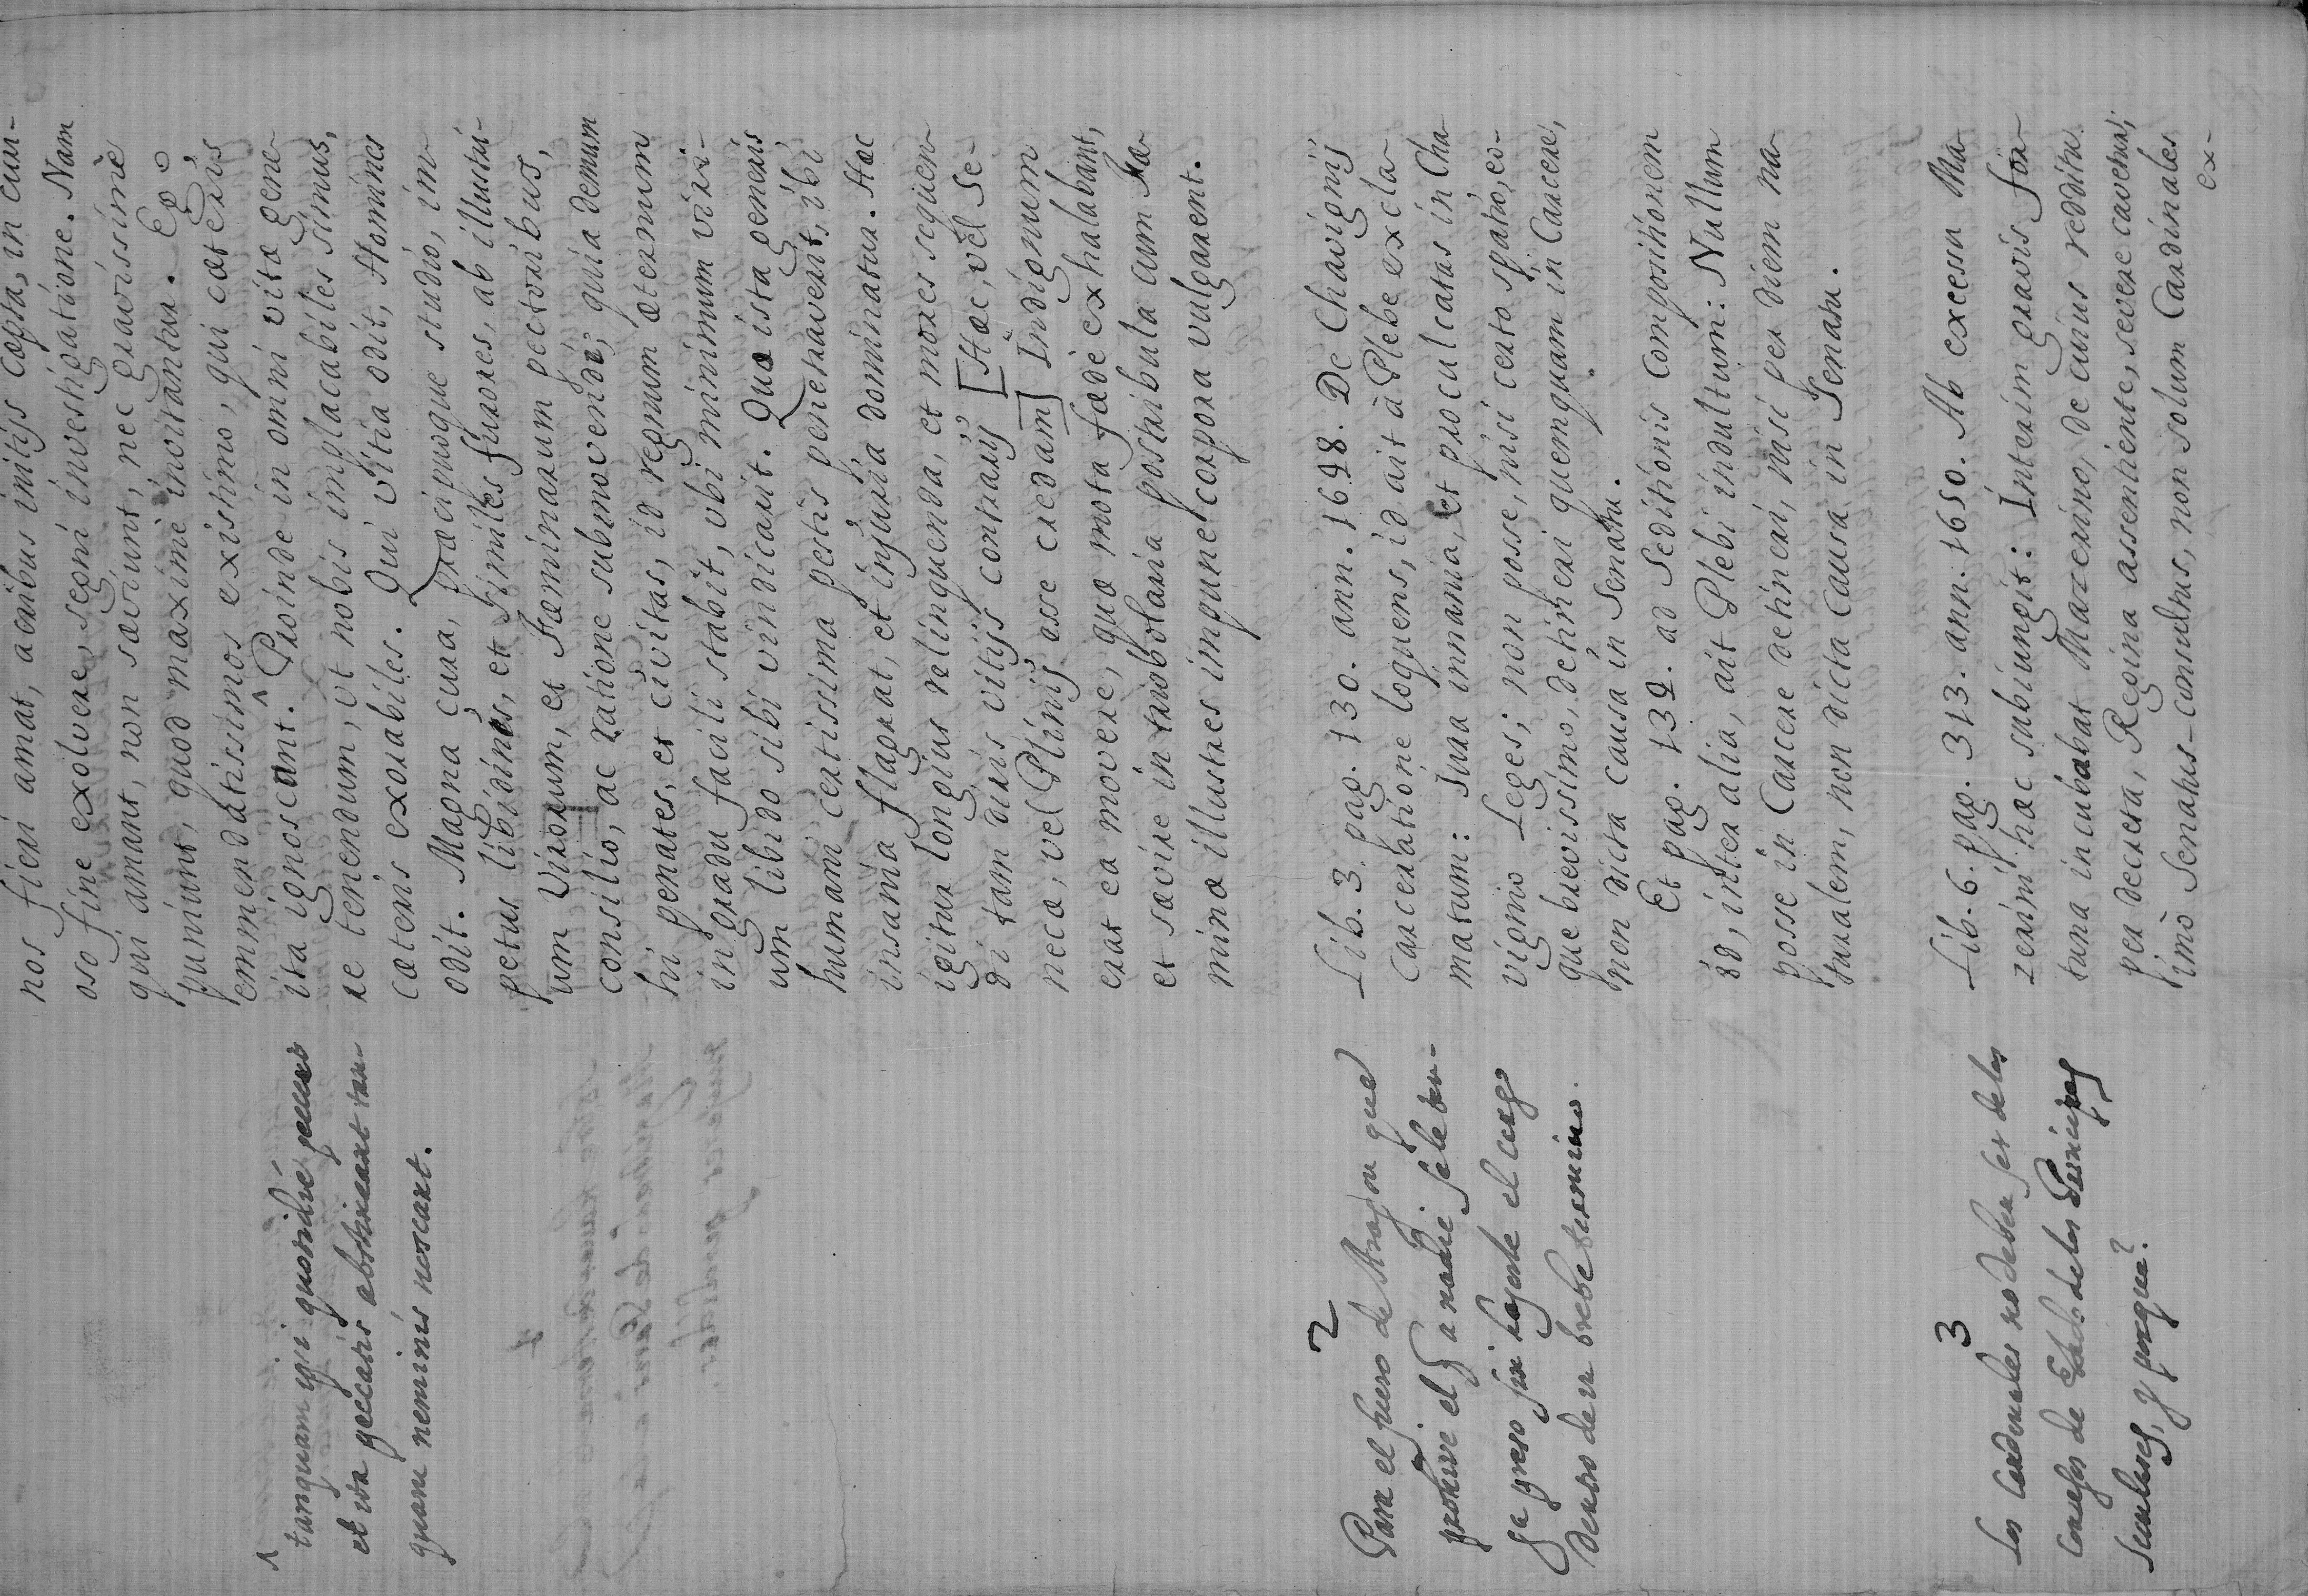 nos fieri amat, acribus initijs cæpta, in curi-
oso fine exolvere, segni investigatione. Nam
qui amant, non sæviunt, nec gravissimè
puniunt, quod maximè invitantur. Ego,
emmendatissimos existimo, qui cæteris
ita ignoscunt. ^ Proinde in omni vitæ gene
re tenendum, ut nobis implacabiles simus,
cæteris exorabiles. Qui vitia odit, Homines
odit. Magna cura, præcipuoque studio, im
petus libidinis, et similes furores, ab illustri-
um Virorum, et Fæminarum pectoribus,
consilio, ac ratione submovendi; quia demum
hi penates, et civitas, id regnum æternum
in gradu facili stabit, ubi minimum viri-
um libido sibi vindicarit. Qua ista generis
humani certissima pestis penetraverit, ibi
insania flagrat, et injuria dominatur. Hæc
igitur longius relinquenda, et mores sequen
di tam diris vitijs contrarij [Hæc, vel Se-
neca, vel Plinij esse credam] Indignum
erat ea movere, quæ mota fædè exhalabant,
et sævire in triobolaria postribula cum Fæ
minæ illustres impune corpora vulgarent.
^
tanquam ipsi quotidie peccent
et ita peccatis abstineant tan
quam neminis noscant.
Lib. 3. pag. 130. ann. 1648. De Chavignij
Carceratione loquens, id ait à Plebe excla
matum: Jura innania, et proculcatas in Cha
vignio Leges; non posse, nisi certo spatio, eo
que brevissimo, detineri quemquam in Carcere,
non dicta causa in Senatu.
Et pag. 139. ad Seditionis Compositionem
id, inter alia, ait Plebi indultum: Nullum
posse in Carcere detineri, nisi per diem na
turalem, non dicta Causa in Senatu.
2
Para el fuero de Aragon que
prohive el q a nadie se le ten-
ga preso sin hazerle el cargo
dentro de un brebe termino.
Lib. 6. pag. 313. ann. 1650. Ab excessu Ma
zerini hæc subiungit: Interim gravis for
tuna incubabat Mazerino, de cuius reditu
per decreta, Regina assentiente, severe cavetur;
imò Senatus-consultus, non solum Cardinales
ex-
3
Los Cardenales no deben ser de los
Consejos de Estado de los Principes
Seculares, y porque?